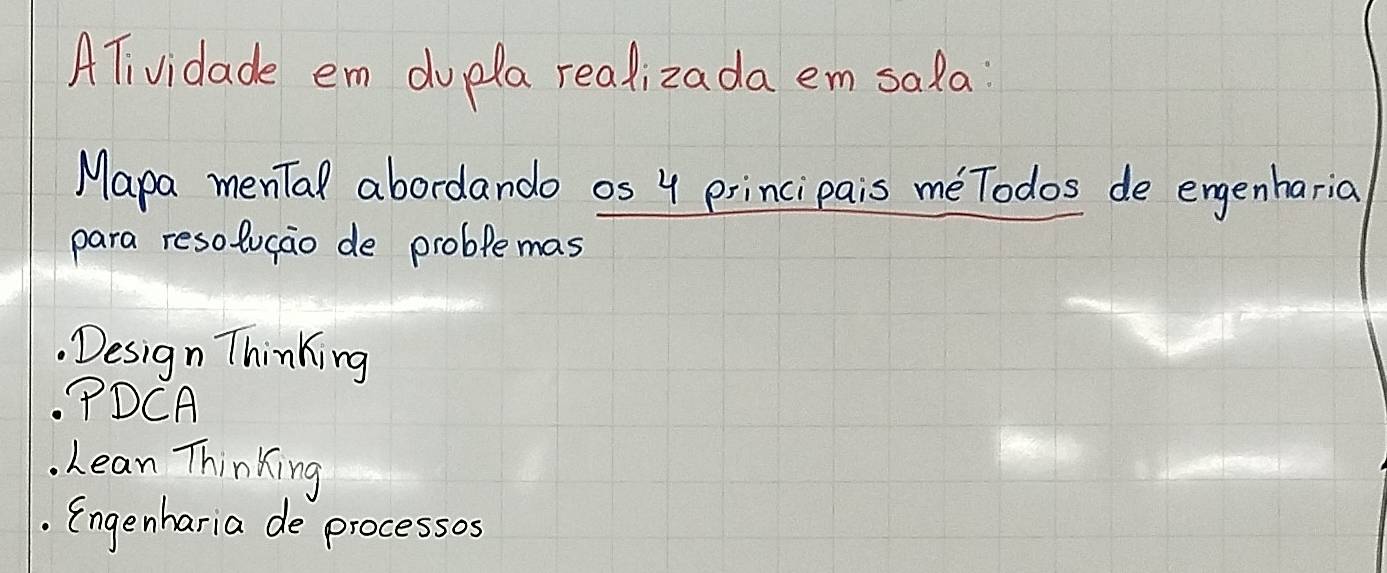 Atividade em dupla realizada em sala:
Mapa mental abordando os 4 principais métodos de engenharia
para resolução de problemas
. Design Thinking
. PDCA
. Lean Thinking
. Engenharia de processos